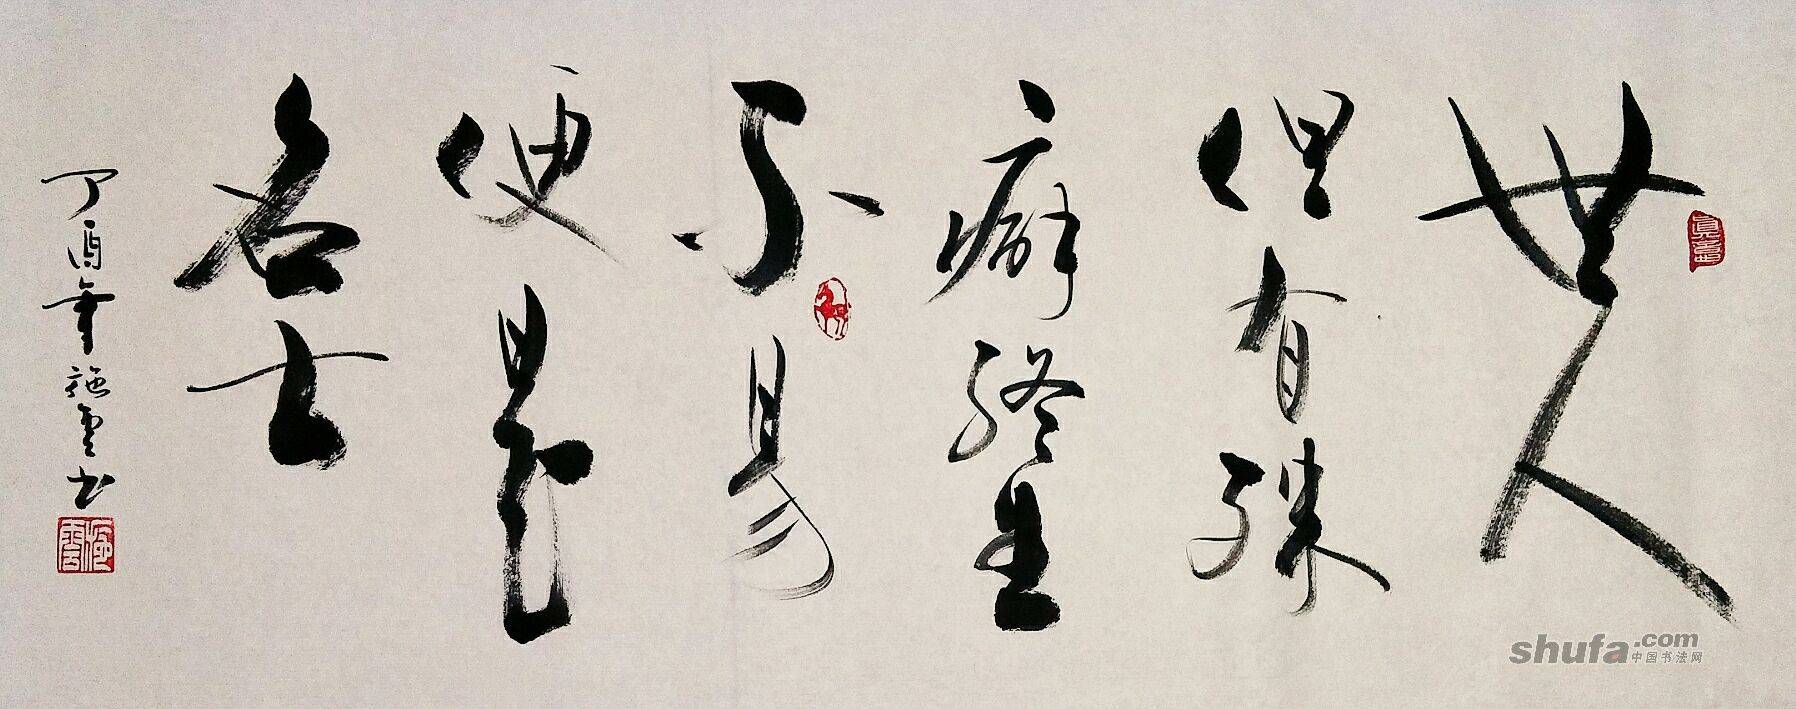 世人
但有殊
癖終生
不易
便是
名士
丁酉年施雲书
施雲
shufa.com
中国书法网